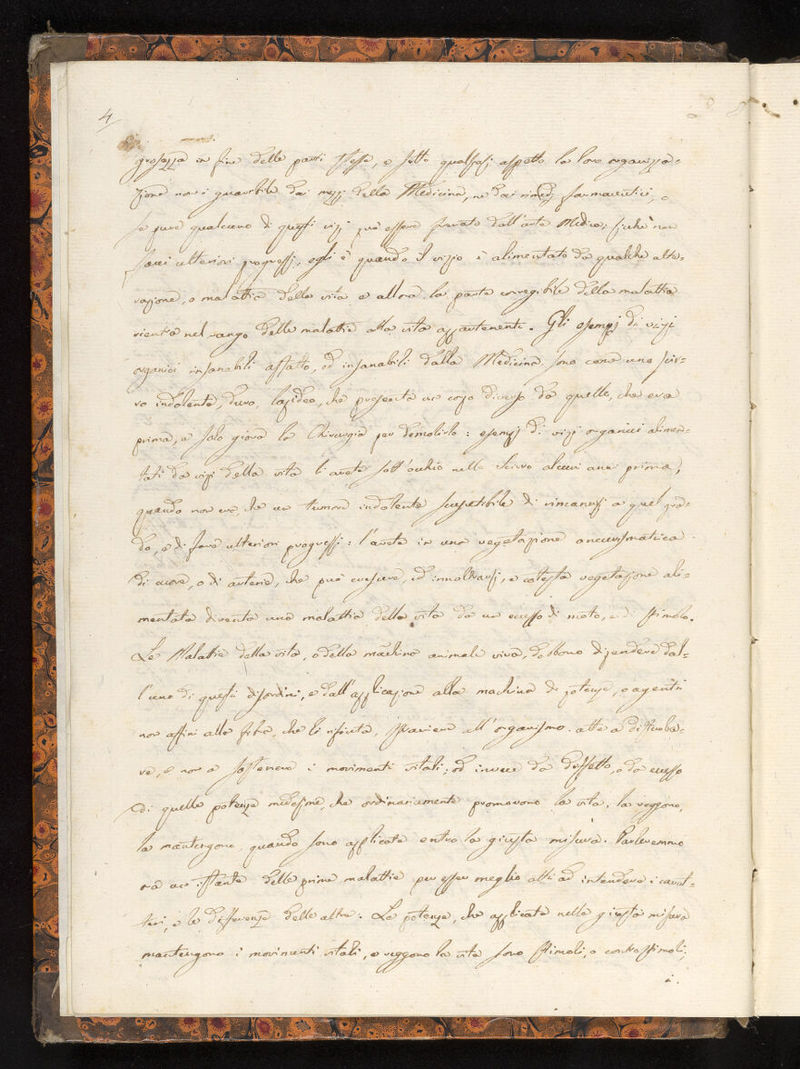 4
grossezza in fine delle parti stesse, e sotto qualsisia aspetto la loro organizza-
zione non è guaribile dai mezzi della Medicina, nè dai rimedj farmaceutici, o
se pure qualcuno di questi vizj può essere frenato dall'arte Medica, sicchè non
facci ulteriori progressi, egli è quando il vizio è alimentato da qualche alte-
razione, o malattia della vita e allora la parte corregibile della malattia
rientra nel rango delle malattie alla vita appartenenti. Gli esempj di vizj
organici insanabili affatto, ed insanabili dalla Medicina sono come uno scir-
ro indolente, duro, lapideo, che presenta un corpo diverso da quello, che era
prima, e solo giova la Chirurgia per demolirlo: esempj di vizj organici alimen-
tati da vizj della vita li avete sott'occhio nello scirro alcuni anni prima,
quando non era che un tumore indolente suscettibile di rincarirsi a quel gra-
do, e di fare ulteriori progressi: l'avete in una vegetazione aneurismatica
di cuore, o di arterie, che può crescere, ed innoltrarsi, e cotesta vegetazione ali-
mentata diventa una malattia della vita da un eccesso di moto, e di stimolo.
Le Malattie della vita, o della machina animale viva, debbono dipendere dal-
l'uno di questi disordini, e dall'applicazione alla machina di potenze, o agenti
non affini alla fibra, che li rifiuta, stranieri all'organismo, atte a disturba-
re, e non a sostenere i movimenti vitali; od invece da difetto, o da eccesso
di quelle potenze medesime, che ordinariamente promovono la vita, la reggono,
la mantengono, quando sono applicate entro la giusta misura. Parleremmo
ora un istante delle prime malattie per esser meglio atti ad intendere i carat-
teri, e le differenze delle altre. Le potenze, che applicate nella giusta misura
mantengono i movimenti vitali, e reggono la vita sono stimoli, o controstimoli,
i.